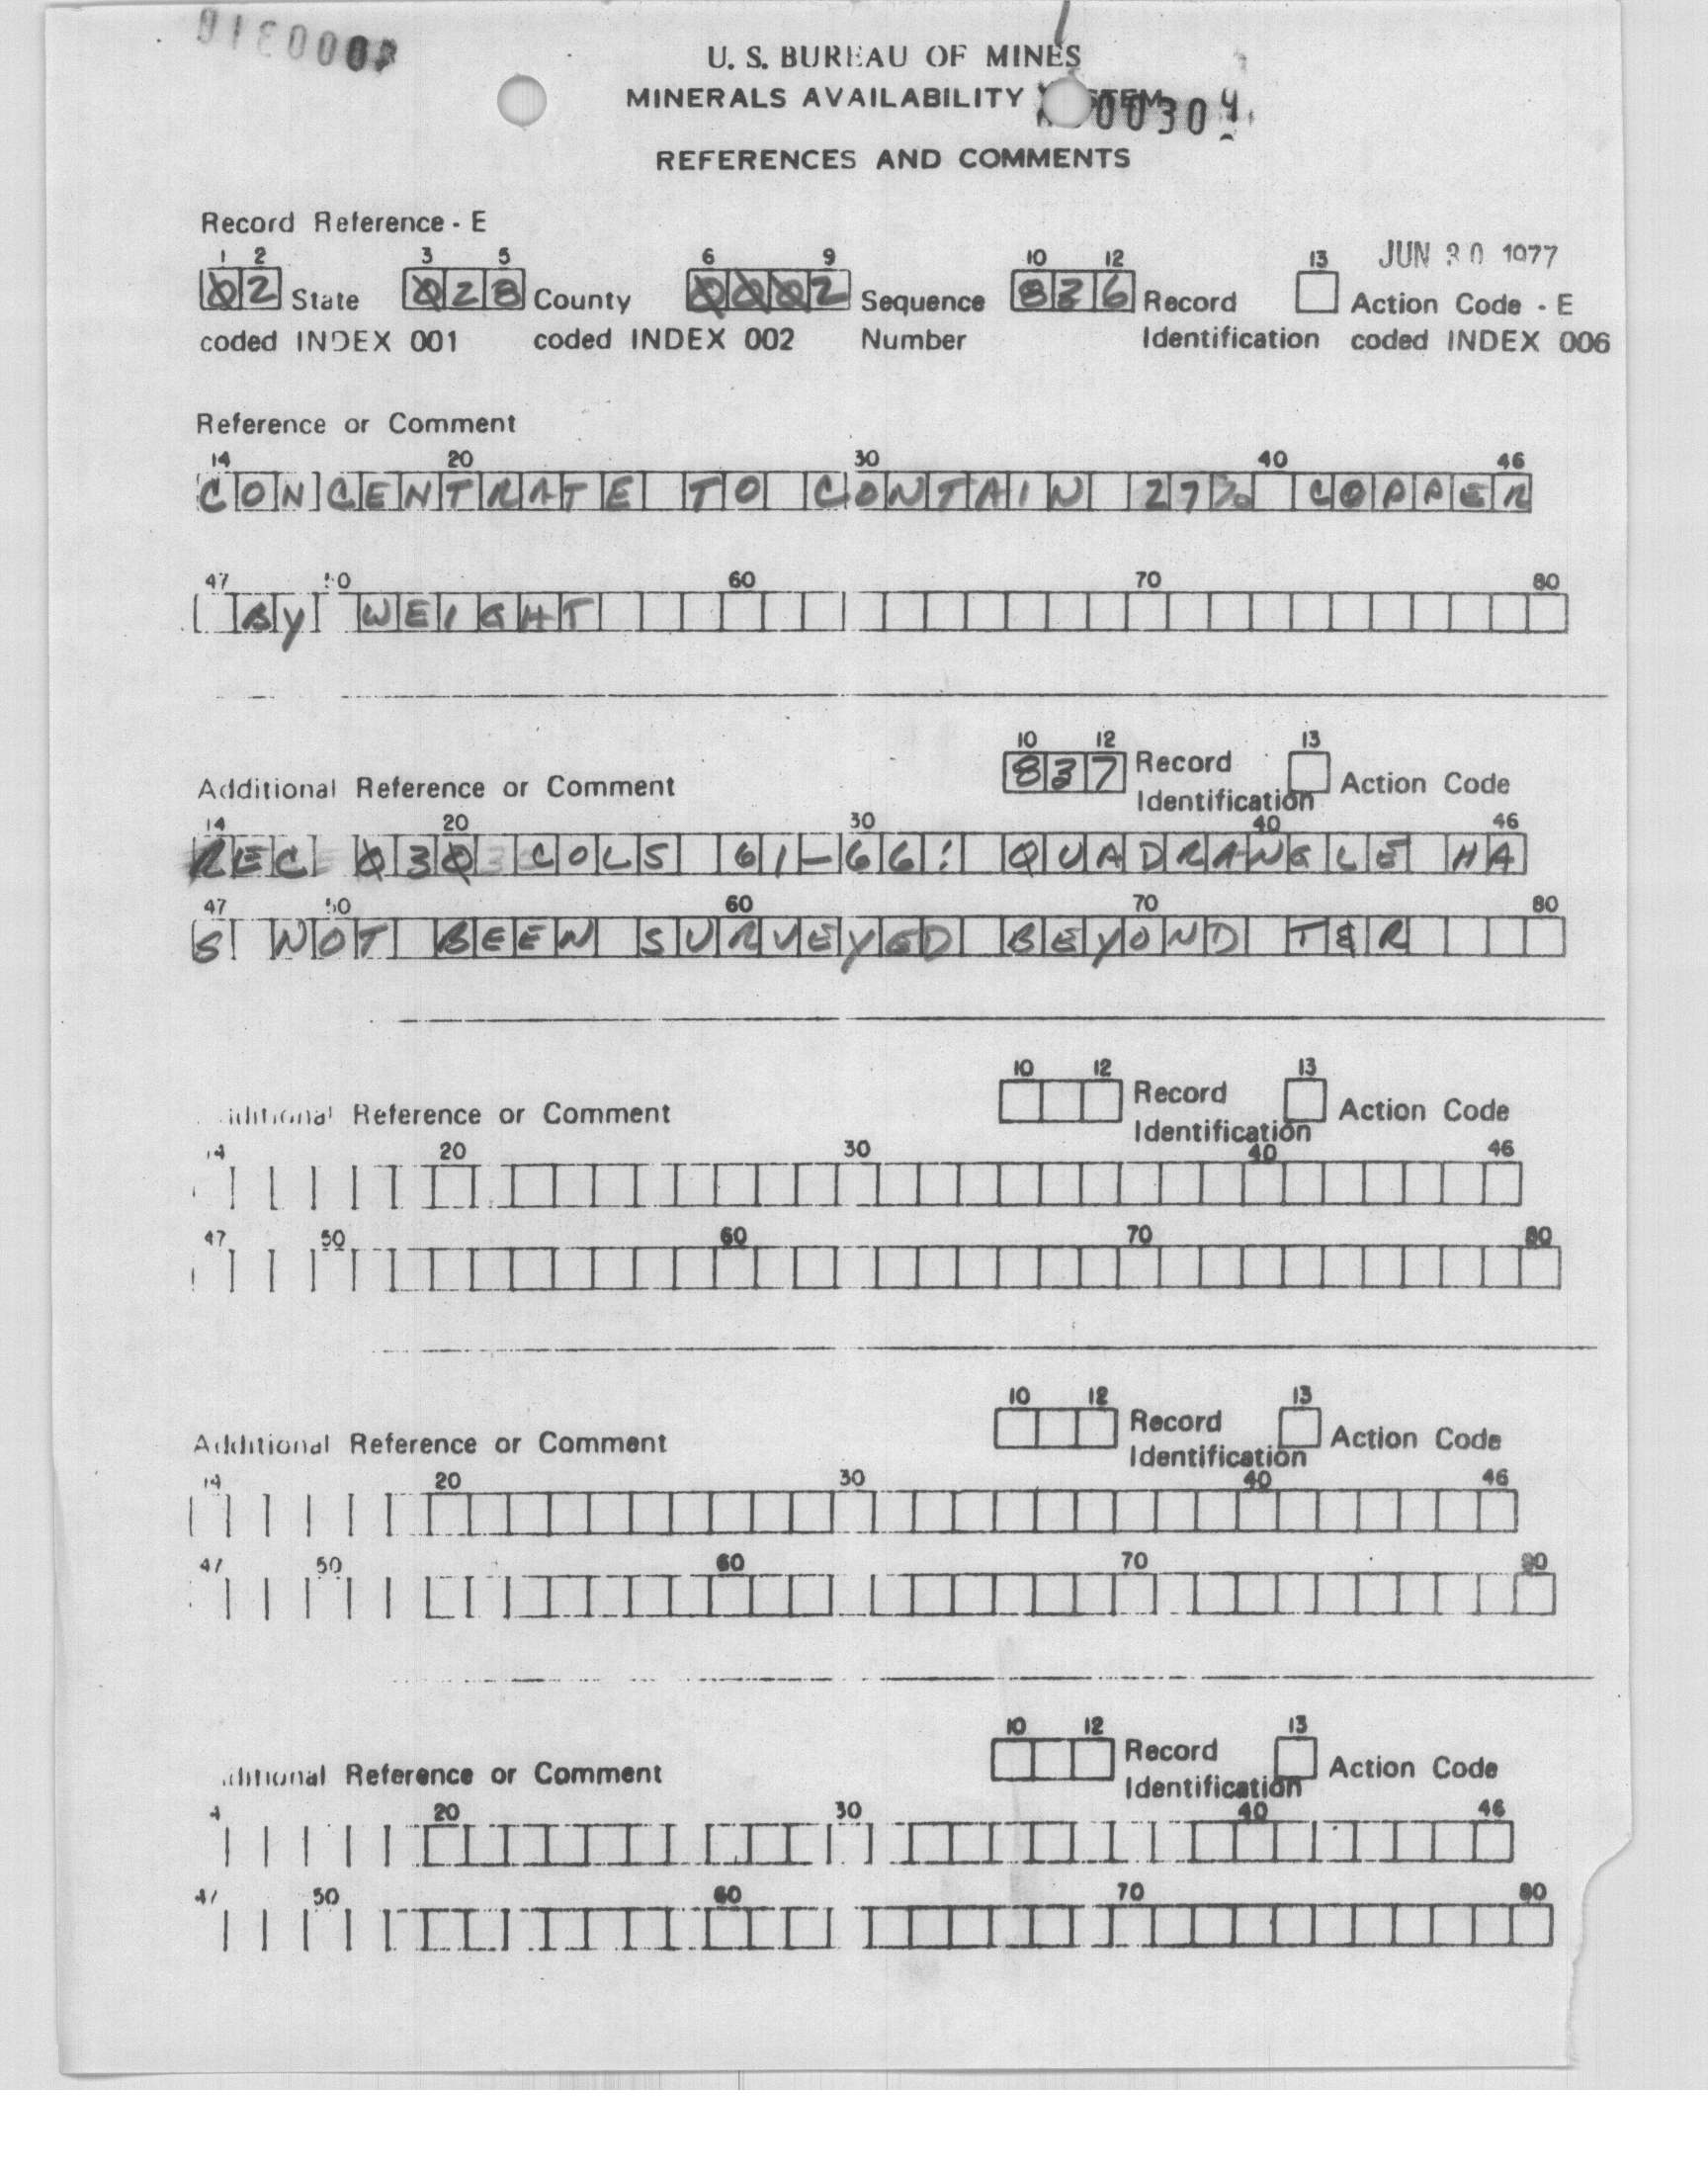 U. S. BUREAU OF MINES
MINERALS AVAILABILITY
REFERENCES AND COMMENTS
Record Reference - E
JUN 30 1977
1 2 3 5 6 9 10 12 13
02 State 028 County 0002 Sequence 836 Record Action Code - E
coded INDEX 001 coded INDEX 002 Number Identification coded INDEX 006
Reference or Comment
14 20 30 40 46
CONCENTRATE TO CONTAIN 27% COPPER
47 50 60 70 80
BY WEIGHT
10 12 13
837 Record
Additional Reference or Comment Action Code
Identification
14 20 30 40 46
REC 030 COLS 61-66: QUADRANGLE HA
47 50 60 70 80
S NOT BEEN SURVEYED BEYOND T&R
10 12 13
Record
Additional Reference or Comment Action Code
Identification
14 20 30 40 46
47 50 60 70 80
10 12 13
Record
Additional Reference or Comment Action Code
Identification
14 20 30 40 46
47 50 60 70 80
10 12 13
Record
Additional Reference or Comment Action Code
Identification
4 20 30 40 46
47 50 60 70 80